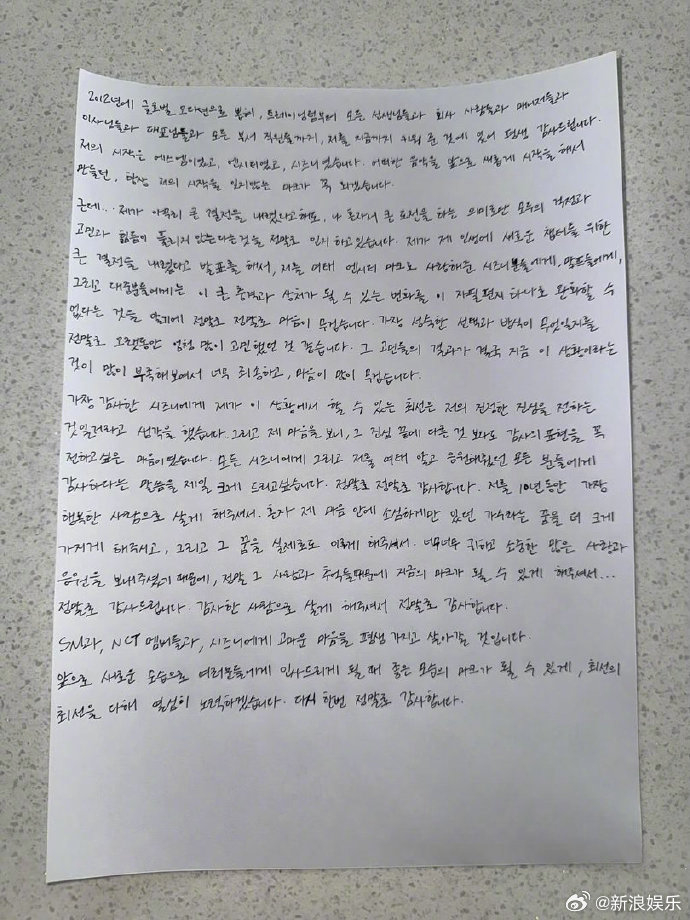 2012년에 글로벌 오디션으로 붙어, 트레이닝팀부터 모든 선생님들과 회사 사람들과 매니저들과
이사님들과 대표님들과 모든 부서 직원들까지, 저를 지금까지 키워 준 것에 있어 평생 감사드립니다.
저의 시작은 에스엠이었고, 엔시티였고, 시즈니였습니다. 어떠한 음악을 앞으로 새롭게 시작을 해서
만들던, 항상 저의 시작을 잊지않는 마크가 꼭 되겠습니다.
근데.. 제가 아무리 큰 결정을 내렸다고해도, 나 혼자서 큰 도전을 하는 의미로만 모두의 걱정과
고민과 힘듦이 풀리지 않는다는것을 정말로 인지 하고있습니다. 제가 제 인생에 새로운 챕터를 위한
큰 결정을 내렸다고 발표를 해서, 저를 여태 엔시티 마크로 사랑해준 시즈니분들에게, 멤프들에게,
그리고 대중분들에게는 이 큰 충격과 상처가 될 수 있는 변화를 이 자필편지 하나로 완화할 수
없다는 것을 알기에 정말로 정말로 마음이 무겁습니다. 가장 성숙한 선택과 방식이 무엇일지를
정말로 오랫동안 엄청 많이 고민했던 것 같습니다. 그 고민들의 결과가 결국 지금 이 상황이라는
것이 많이 부족해보여서 너무 죄송하고, 마음이 많이 무겁습니다.
가장 감사한 시즈니에게 제가 이 상황에서 할 수 있는 최선은 저의 진정한 진심을 전하는
것일거라고 생각을 했습니다. 그리고 제 마음을 보니, 그 진심 끝에 다른 것 보다도 감사의 표현을 꼭
전하고싶은 마음이였습니다. 모든 시즈니에게 그리고 저를 여태 알고 응원해줬던 모든 분들에게
감사하다는 말씀을 제일 크게 드리고싶습니다. 정말로 정말로 감사합니다. 저를 10년동안 가장
행복한 사람으로 살게 해주셔서. 혼자 제 마음 안에 소심하게만 있던 가수라는 꿈을 더 크게
가지게 해주시고, 그리고 그 꿈을 실제로도 이루게 해주셔서. 너무너무 귀하고 소중한 많은 사랑과
응원을 보내주셨기 때문에, 정말 그 사랑과 추억들때문에 지금의 마크가 될 수 있게 해주셔서...
정말로 감사드립니다. 감사한 사람으로 살게 해주셔서 정말로 감사합니다.
SM과, NCT 멤버들과, 시즈니에게 고마운 마음을 평생 가지고 살아갈 것입니다.
앞으로 새로운 모습으로 여러분들에게 인사드리게 될 때 좋은 모습의 마크가 될 수 있게, 최선의
최선을 다해 열심히 노력하겠습니다. 다시 한번 정말로 감사합니다.
@新浪娱乐